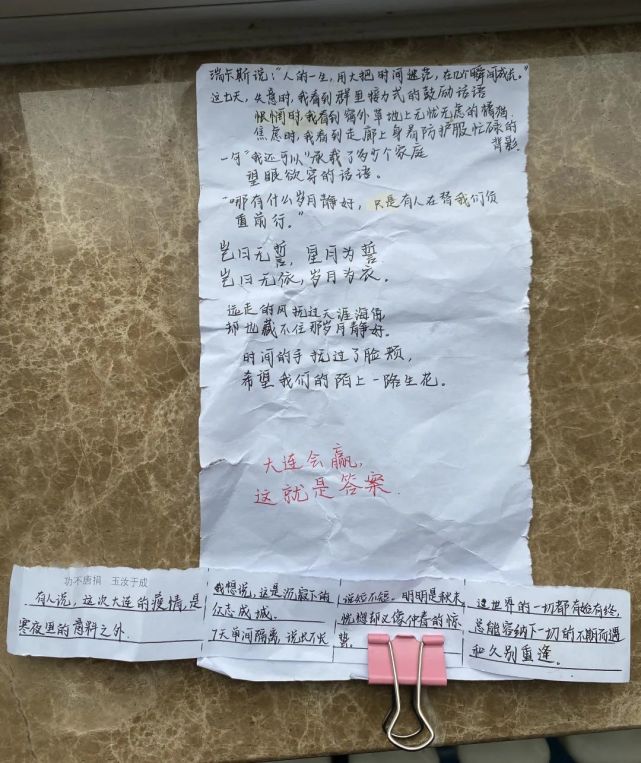 瑞卡斯说："人的一生，用大把时间迷茫，在几个瞬间成长。"
这七天，失意时，我看到群里接力式的鼓励话语
惆怅时，我看到窗外草地上无忧无虑的猫猫
焦虑时，我看到走廊上身着防护服忙碌的
背影
一句"我还可以"承载了多少个家庭
望眼欲穿的话语。
"哪有什么岁月静好，只是有人在替我们负
重前行。"
岂曰无誓，星月为誓
岂曰无依，岁月为衣。
远走的风抚过天涯海角
却也藏不住那岁月静好。
时间的手抚过了脸颊，
希望我们的陌上一路生花。
大连会赢，
这就是答案.
功不唐捐 玉汝于成
有人说，这次大连的疫情，是
寒夜里的意料之外.
我想说，这是沉寂下的
众志成城.
7天单间隔离，说长不长
说短不短。明明是秋末，
恍惚却又像仲春的惊
蛰。
这世界的一切都有始有终.
总能容纳下一切的不期而遇
和久别重逢。